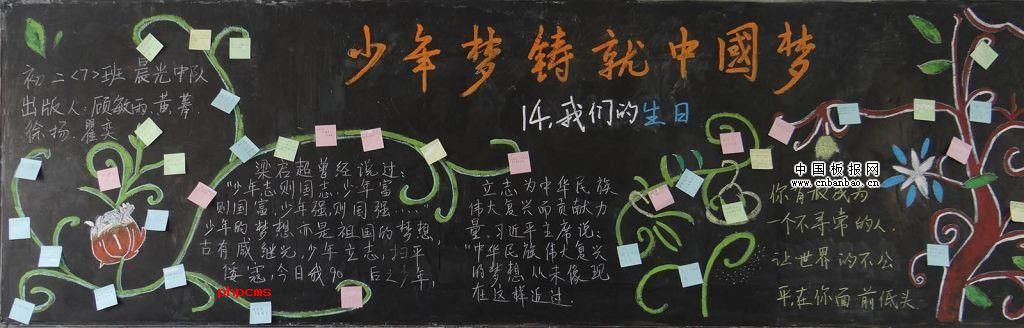 少年梦铸就中國梦
14,我们的生日
初二<7>班 晨光中队
出版人:顾敏雨,黄蓦.
徐扬.瞿奕
梁启超曾经说过:
"少年志则国志,少年富
则国富,少年强,则国强……"
少年的梦想,亦是祖国的梦想,
古有戚继光,少年立志,扫平
倭寇,今日我90后之少年,
立志为中华民族
伟大复兴而贡献力
量,习近平主席说:
"中华民族伟大复兴
的梦想从未像现
在这样近过
你肯做成为
一个不寻常的人.
让世界的不公
平,在你面前低头.
中国板报网
www.cnbanbao.cn
phpcms